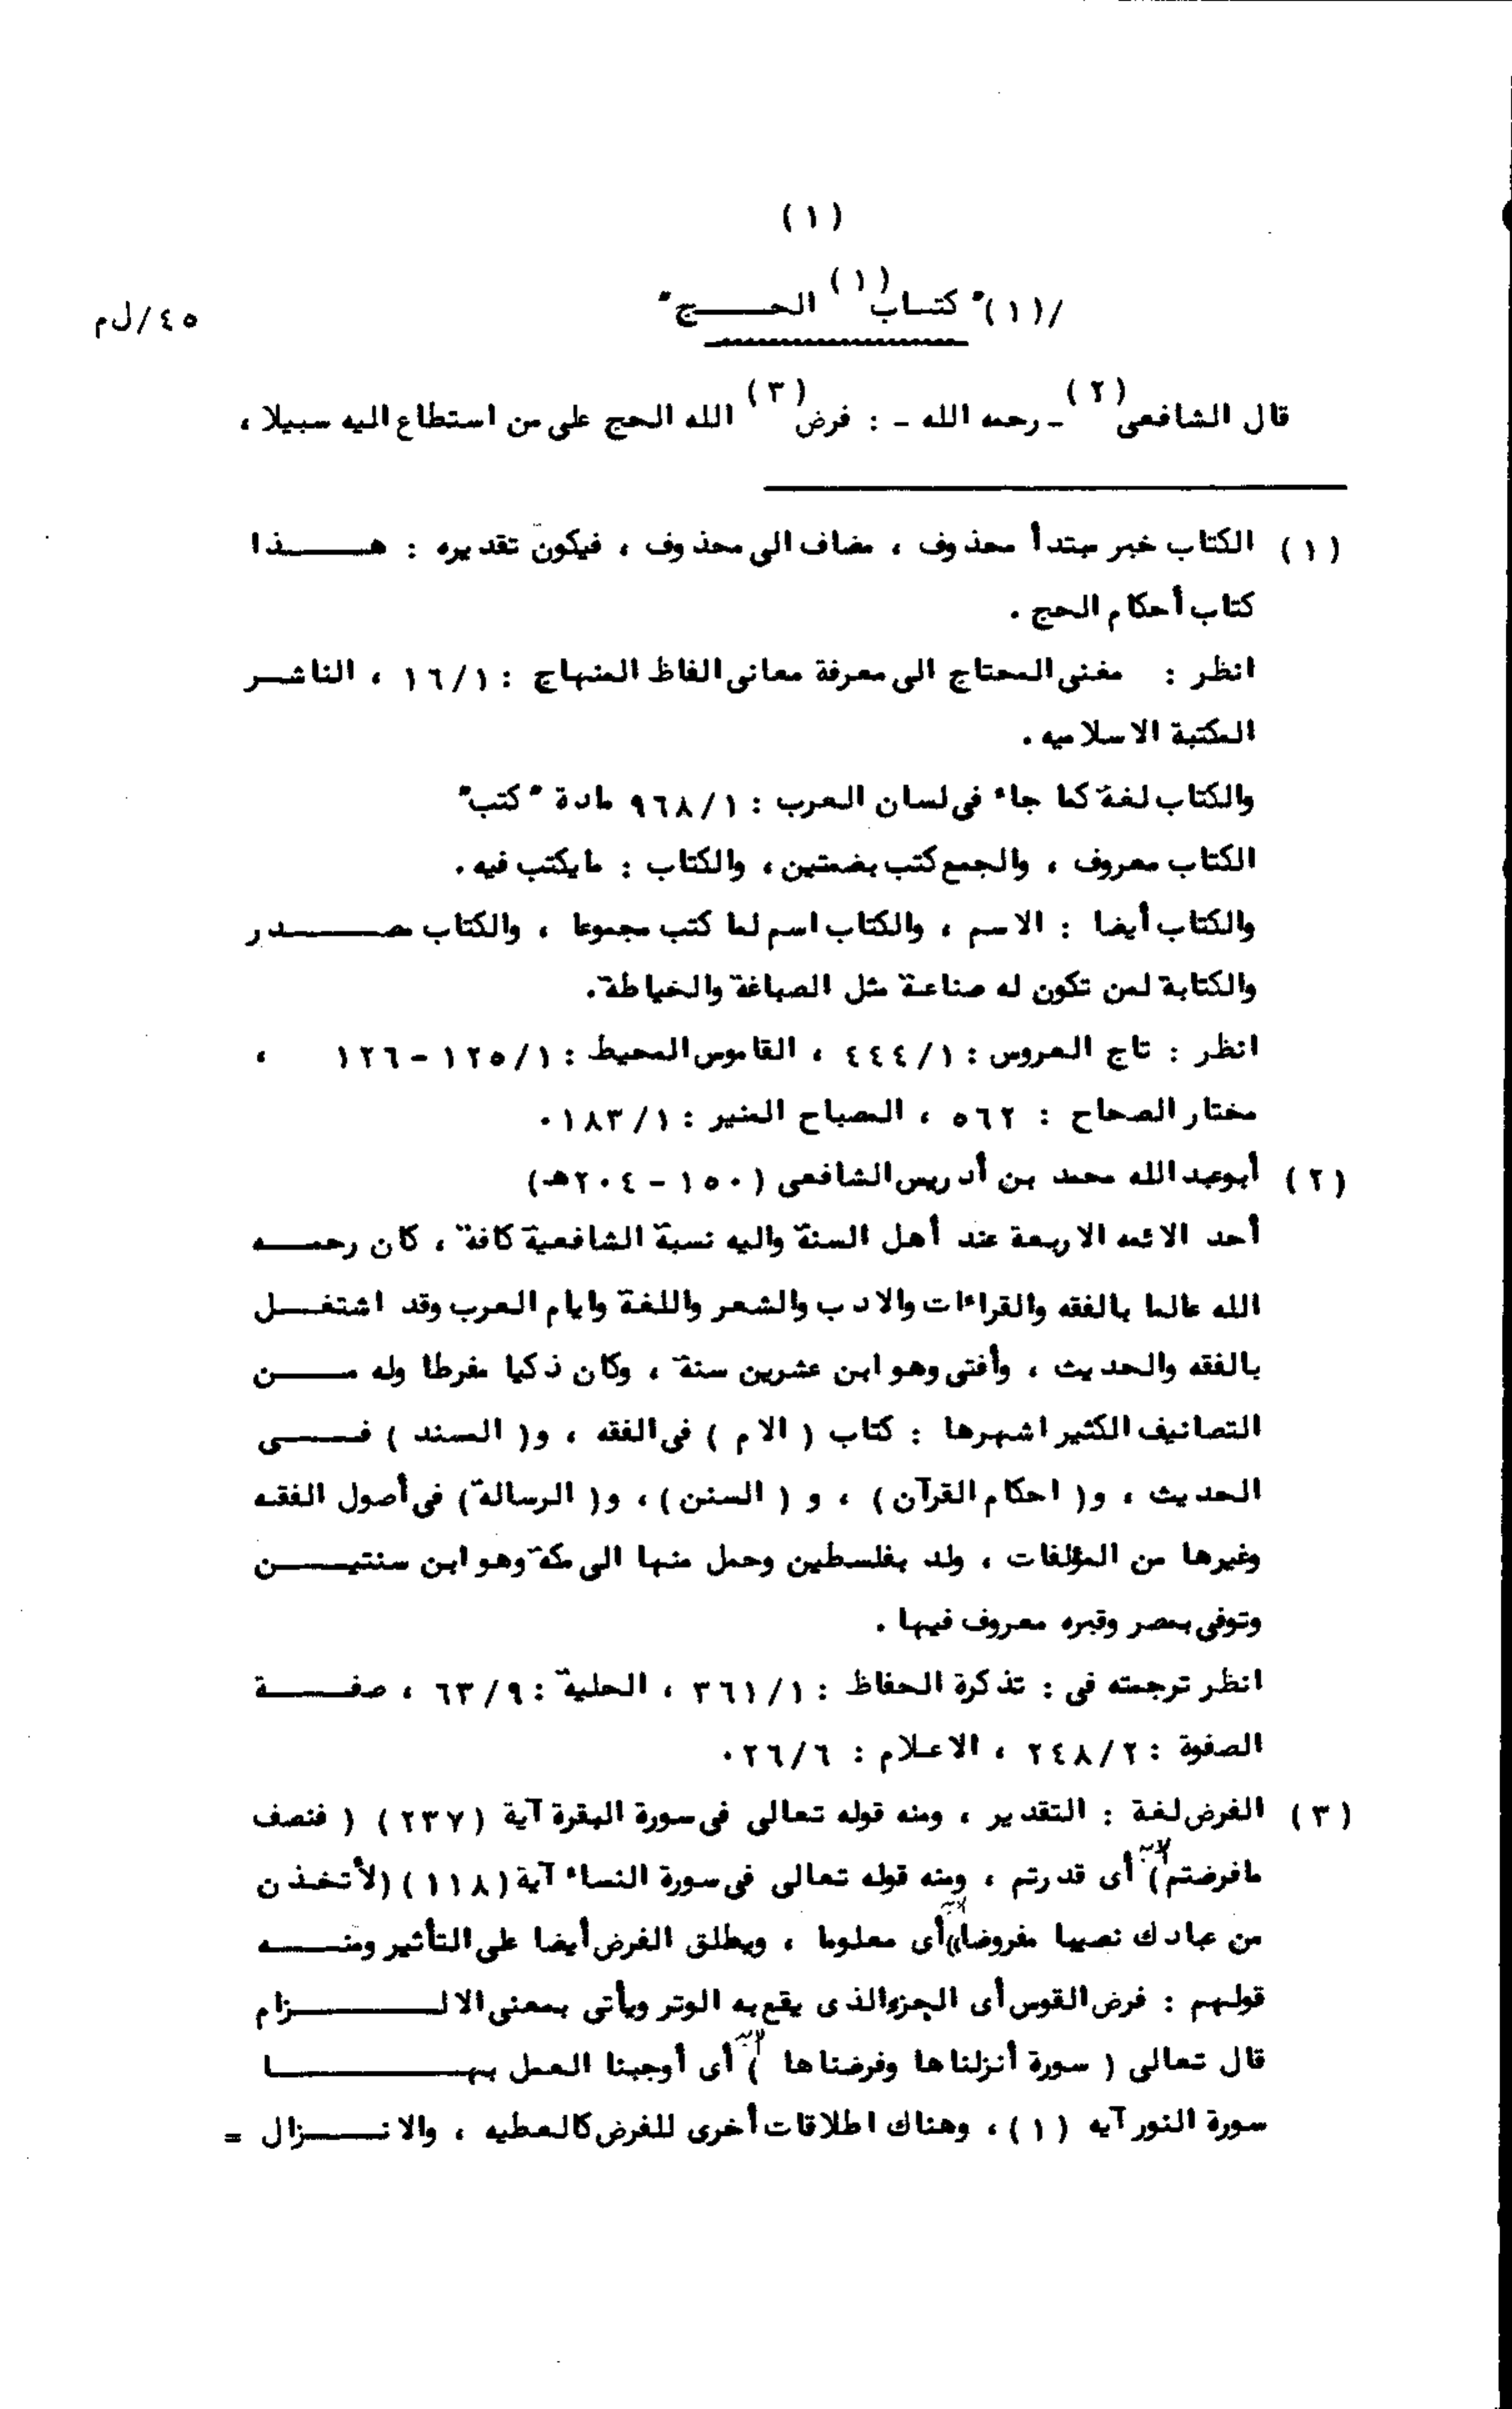 (١)
/(١)" كتـاب(١) الحــــج"
٤٥/ل م
قال الشافعى(٢) ـ رحمه الله ـ : فرض(٣) الله الحج على من استطاع اليه سبيلا ،
(١) الكتاب خبر مبتدأ محذوف ، مضاف الى محذوف ، فيكون تقديره : هــــــذا
كتاب أحكام الحج .
انظر : مغنى المحتاج الى معرفة معانى الفاظ المنهاج : ١٦/١ ، الناشـــر
المكتبة الاسلاميه .
والكتاب لغة كما جاء فى لسان العرب : ٩٦٨/١ مادة "كتب"
الكتاب معروف ، والجمع كتب بضمتين ، والكتاب : مايكتب فيه .
والكتاب أيضا : الاسم ، والكتاب اسم لما كتب مجموعا ، والكتاب مصــــدر
والكتابة لمن تكون له صناعة مثل الصباغة والخياطة .
انظر : تاج العروس : ٤٤٤/١ ، القاموس المحيط : ١٢٥/١ - ١٢٦ ،
مختار الصحاح : ٥٦٢ ، المصباح المنير : ١٨٣/١ .
(٢) أبوعبد الله محمد بن أدريس الشافعى (١٥٠ - ٢٠٤هـ)
أحد الائمه الاربعة عند أهل السنة واليه نسبة الشافعية كافة ، كان رحمـــه
الله عالما بالفقه والقراءات والادب والشعر واللغة وايام العرب وقد اشتغـــل
بالفقه والحديث ، وأفتى وهو ابن عشرين سنة ، وكان ذكيا مفرطا وله مــــن
التصانيف الكثير اشهرها : كتاب ( الام ) فى الفقه ، و( المسند ) فــــى
الحديث ، و( احكام القرآن ) ، و ( السنن ) ، و( الرسالة ) فى أصول الفقه
وغيرها من المؤلفات ، ولد بفلسطين وحمل منها الى مكة وهو ابن سنتيــــن
وتوفى بمصر وقبره معروف فيها .
انظر ترجمته فى : تذكرة الحفاظ : ٣٦١/١ ، الحلية : ٦٣/٩ ، صفــــة
الصفوة : ٢٤٨/٢ ، الاعلام : ٢٦/٦ .
(٣) الفرض لغة : التقدير ، ومنه قوله تعالى فى سورة البقرة آية (٢٣٧) ( فنصف
مافرضتم ) أى قدرتم ، ومنه قوله تعالى فى سورة النساء آية (١١٨) (لأتخذن
من عبادك نصيبا مفروضا) أى معلوما ، ويطلق الفرض أيضا على التأثير ومنــــه
قولهم : فرض القوس أى الجزء الذى يقع به الوتر ويأتى بمعنى الالــــــــزام
قال تعالى ( سورة أنزلناها وفرضناها ) أى أوجبنا العمل بهــــــــــا
سورة النور آيه (١) ، وهناك اطلاقات أخرى للفرض كالعطيه ، والانـــــزال =